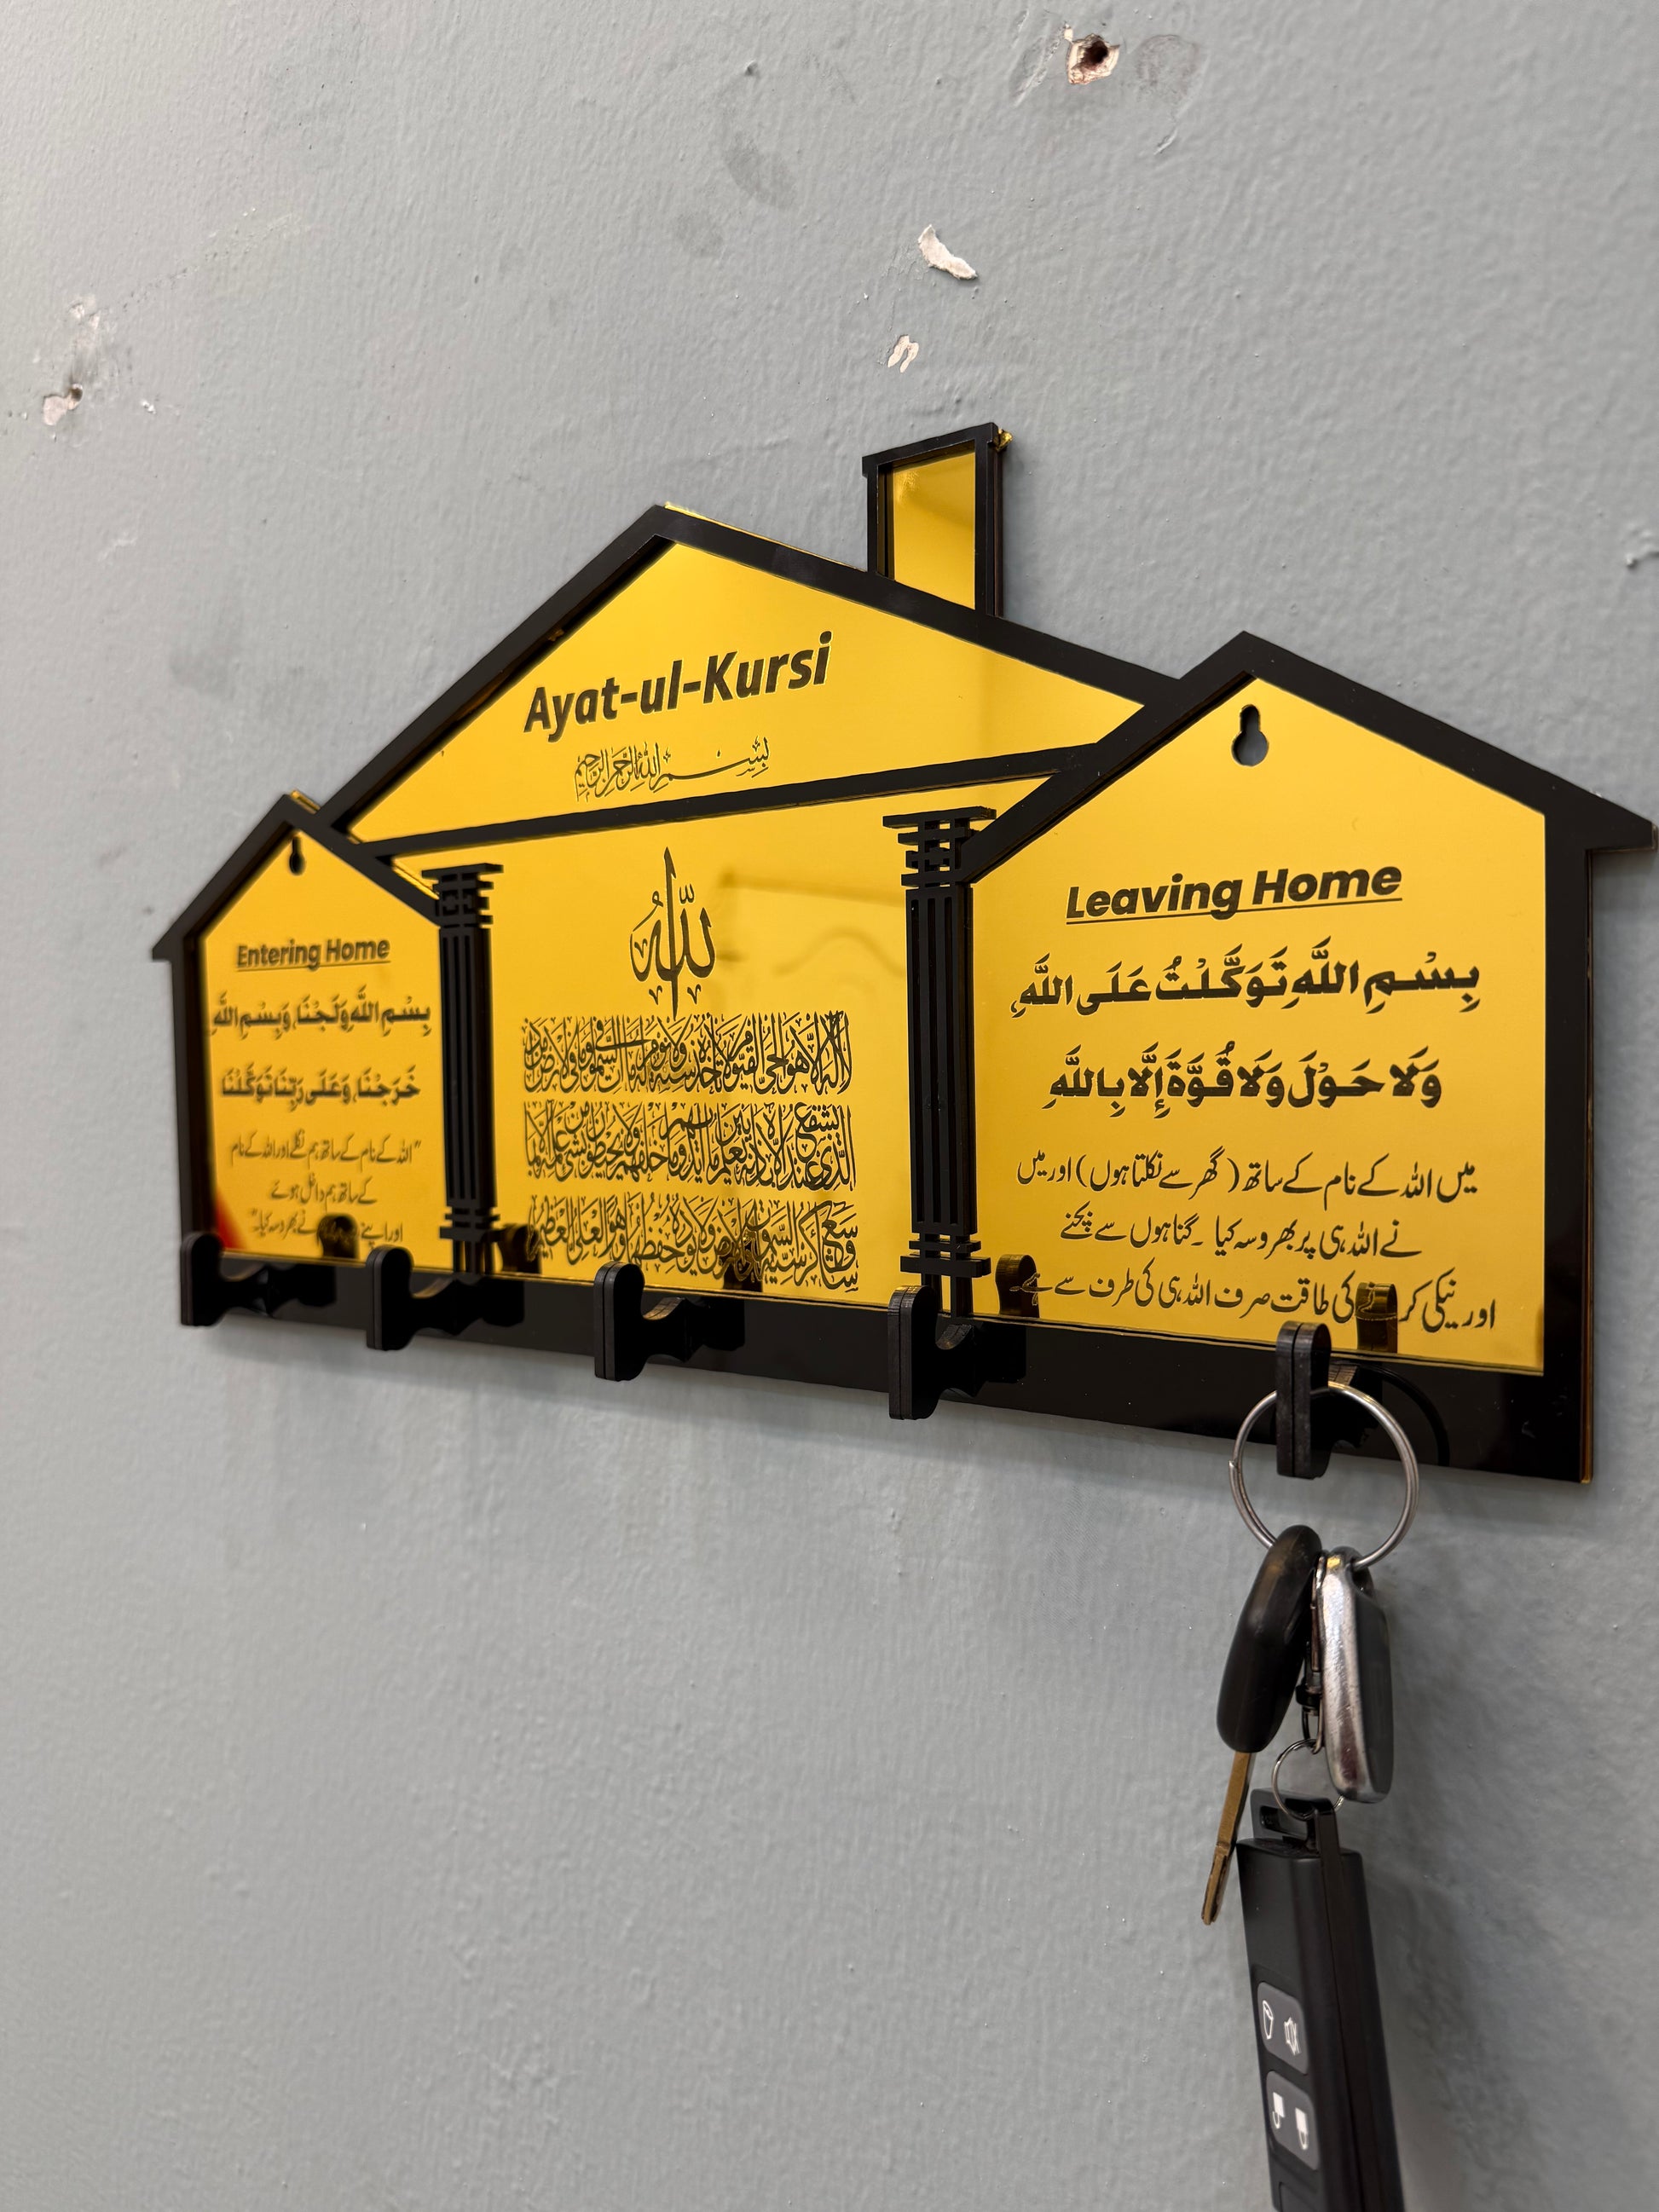 Ayat-ul-Kursi
بسم الله الرحمن الرحيم
Entering Home
بِسْمِ اللَّهِ وَلَجْنَا، وَبِسْمِ اللَّهِ
خَرَجْنَا، وَعَلَى رَبِّنَا تَوَكَّلْنَا
"اللہ کے نام کے ساتھ ہم نکلے اور اللہ کے نام
کے ساتھ ہم داخل ہوئے
اور اپنے نے بھروسہ کیا۔"
الله
لا إله إلا هو الحي القيوم لا تأخذه سنة ولا نوم له ما في السموت وما في الأرض من
الذي يشفع عنده إلا بإذنه يعلم ما بين أيديهم وما خلفهم ولا يحيطون بشيء من علمه إلا بما
شاء وسع كرسيه السموت والأرض ولا يؤده حفظهما وهو العلي العظيم
Leaving Home
بِسْمِ اللَّهِ تَوَكَّلْتُ عَلَى اللَّهِ،
وَلَا حَوْلَ وَلَا قُوَّةَ إِلَّا بِاللَّهِ
میں اللہ کے نام کے ساتھ ( گھر سے نکلتا ہوں ) اور میں
نے اللہ ہی پر بھروسہ کیا ۔ گناہوں سے بچنے
اور نیکی کرنے کی طاقت صرف اللہ ہی کی طرف سے ہے۔